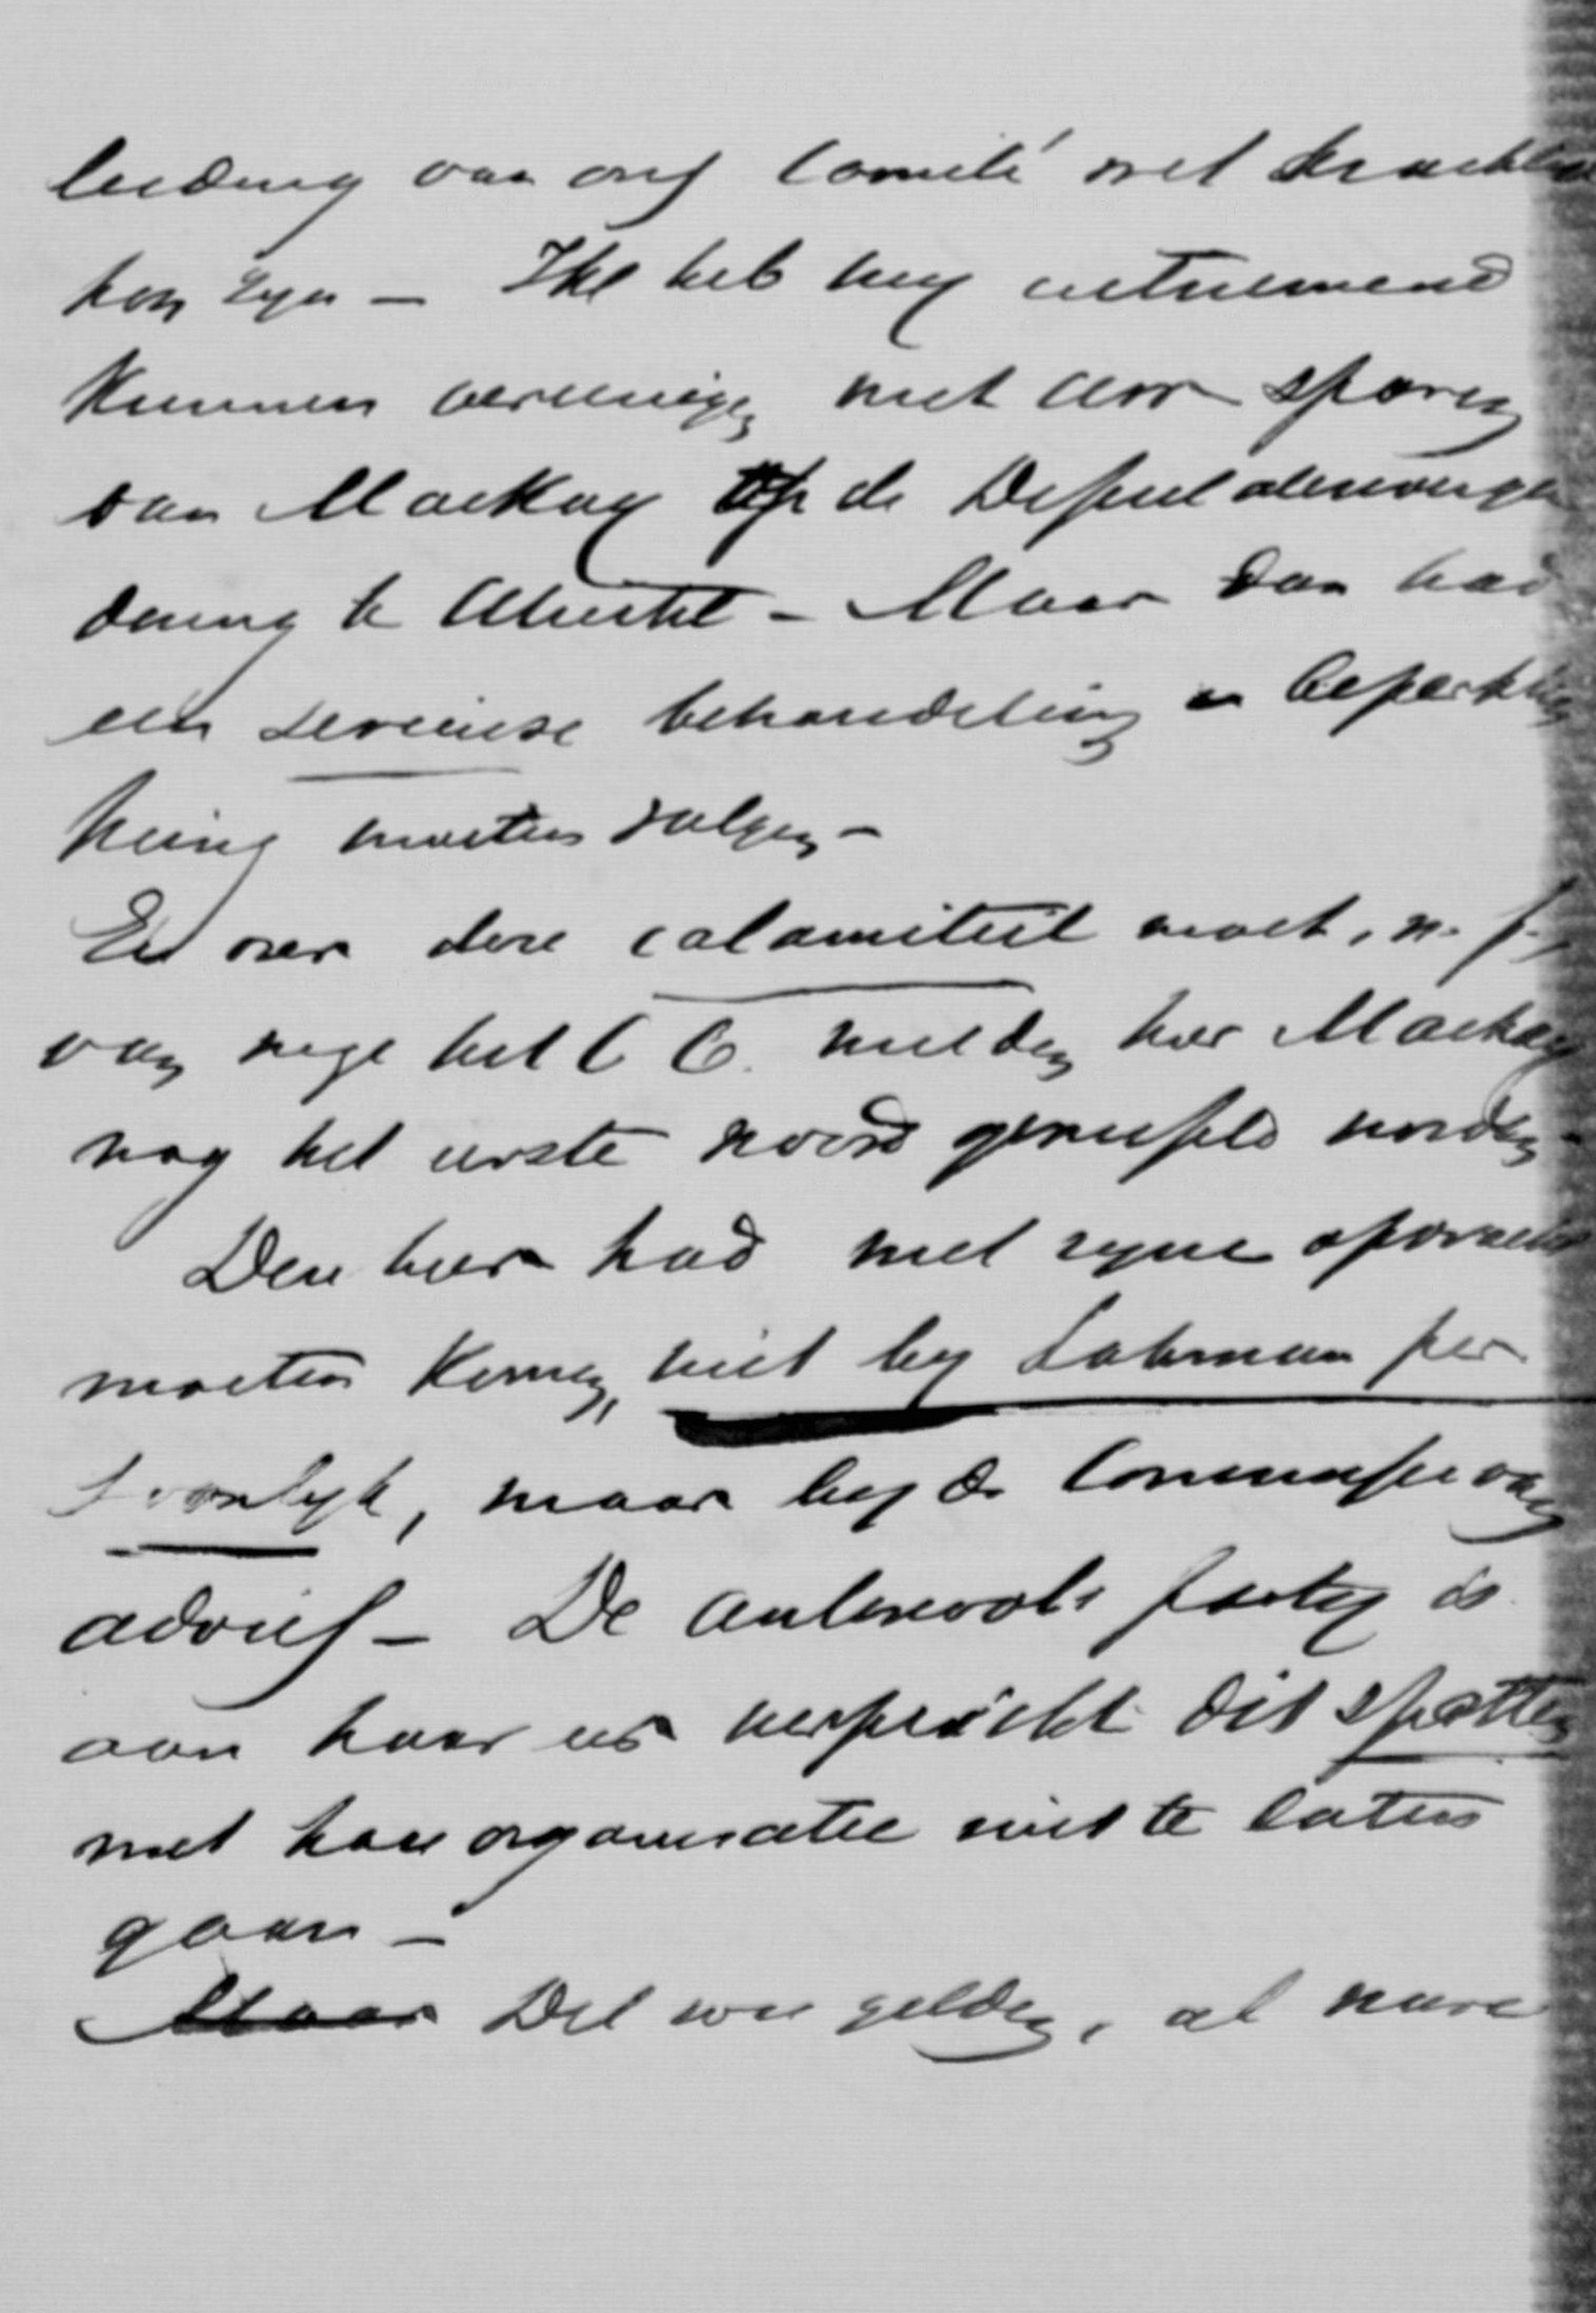 leiding van ons Comité niet krachtig
kon zyn - Ik heb my uitnemend
kunnen vereenigen met aan
van Mackay op de Deputatenverga
dering te Utrecht - Maar dan had
een serieuse behandeling en beperkt
king moeten volgen -
En over deze calamiteit moet, n. f.
van wege het C C. met den heer Mackay
nog het eerste woord gewisseld worden -
Deze heer had met zyne
moeten komen, niet by Lohman per
soonlyk, maar by de Commissie van
advies - De antirevol. party is
aan haar eer verplicht dit spotten
met hare organisatie niet te laten
gaan -
Maar Dit zou gelden, al ware